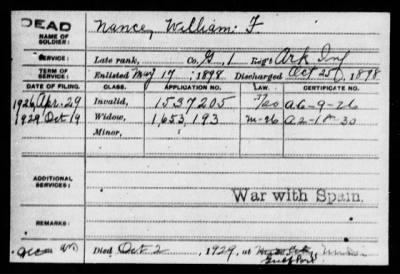 DEAD
NAME OF SOLDIER: Nance, William F.
SERVICE: Late rank, Co. G, 1 Reg't Ark Inf
TERM OF SERVICE: Enlisted May 17, 1898 Discharged Oct 25, 1898
DATE OF FILING. CLASS. APPLICATION NO. LAW. CERTIFICATE NO.
1926 Apr-29 Invalid, 1537205 A6-9-26
1929 Oct 19 Widow, 1,653,193 m-26 A2-18-30
Minor,
ADDITIONAL SERVICES:
War with Spain.
REMARKS:
Died Oct 2, 1929, at
Gulfport